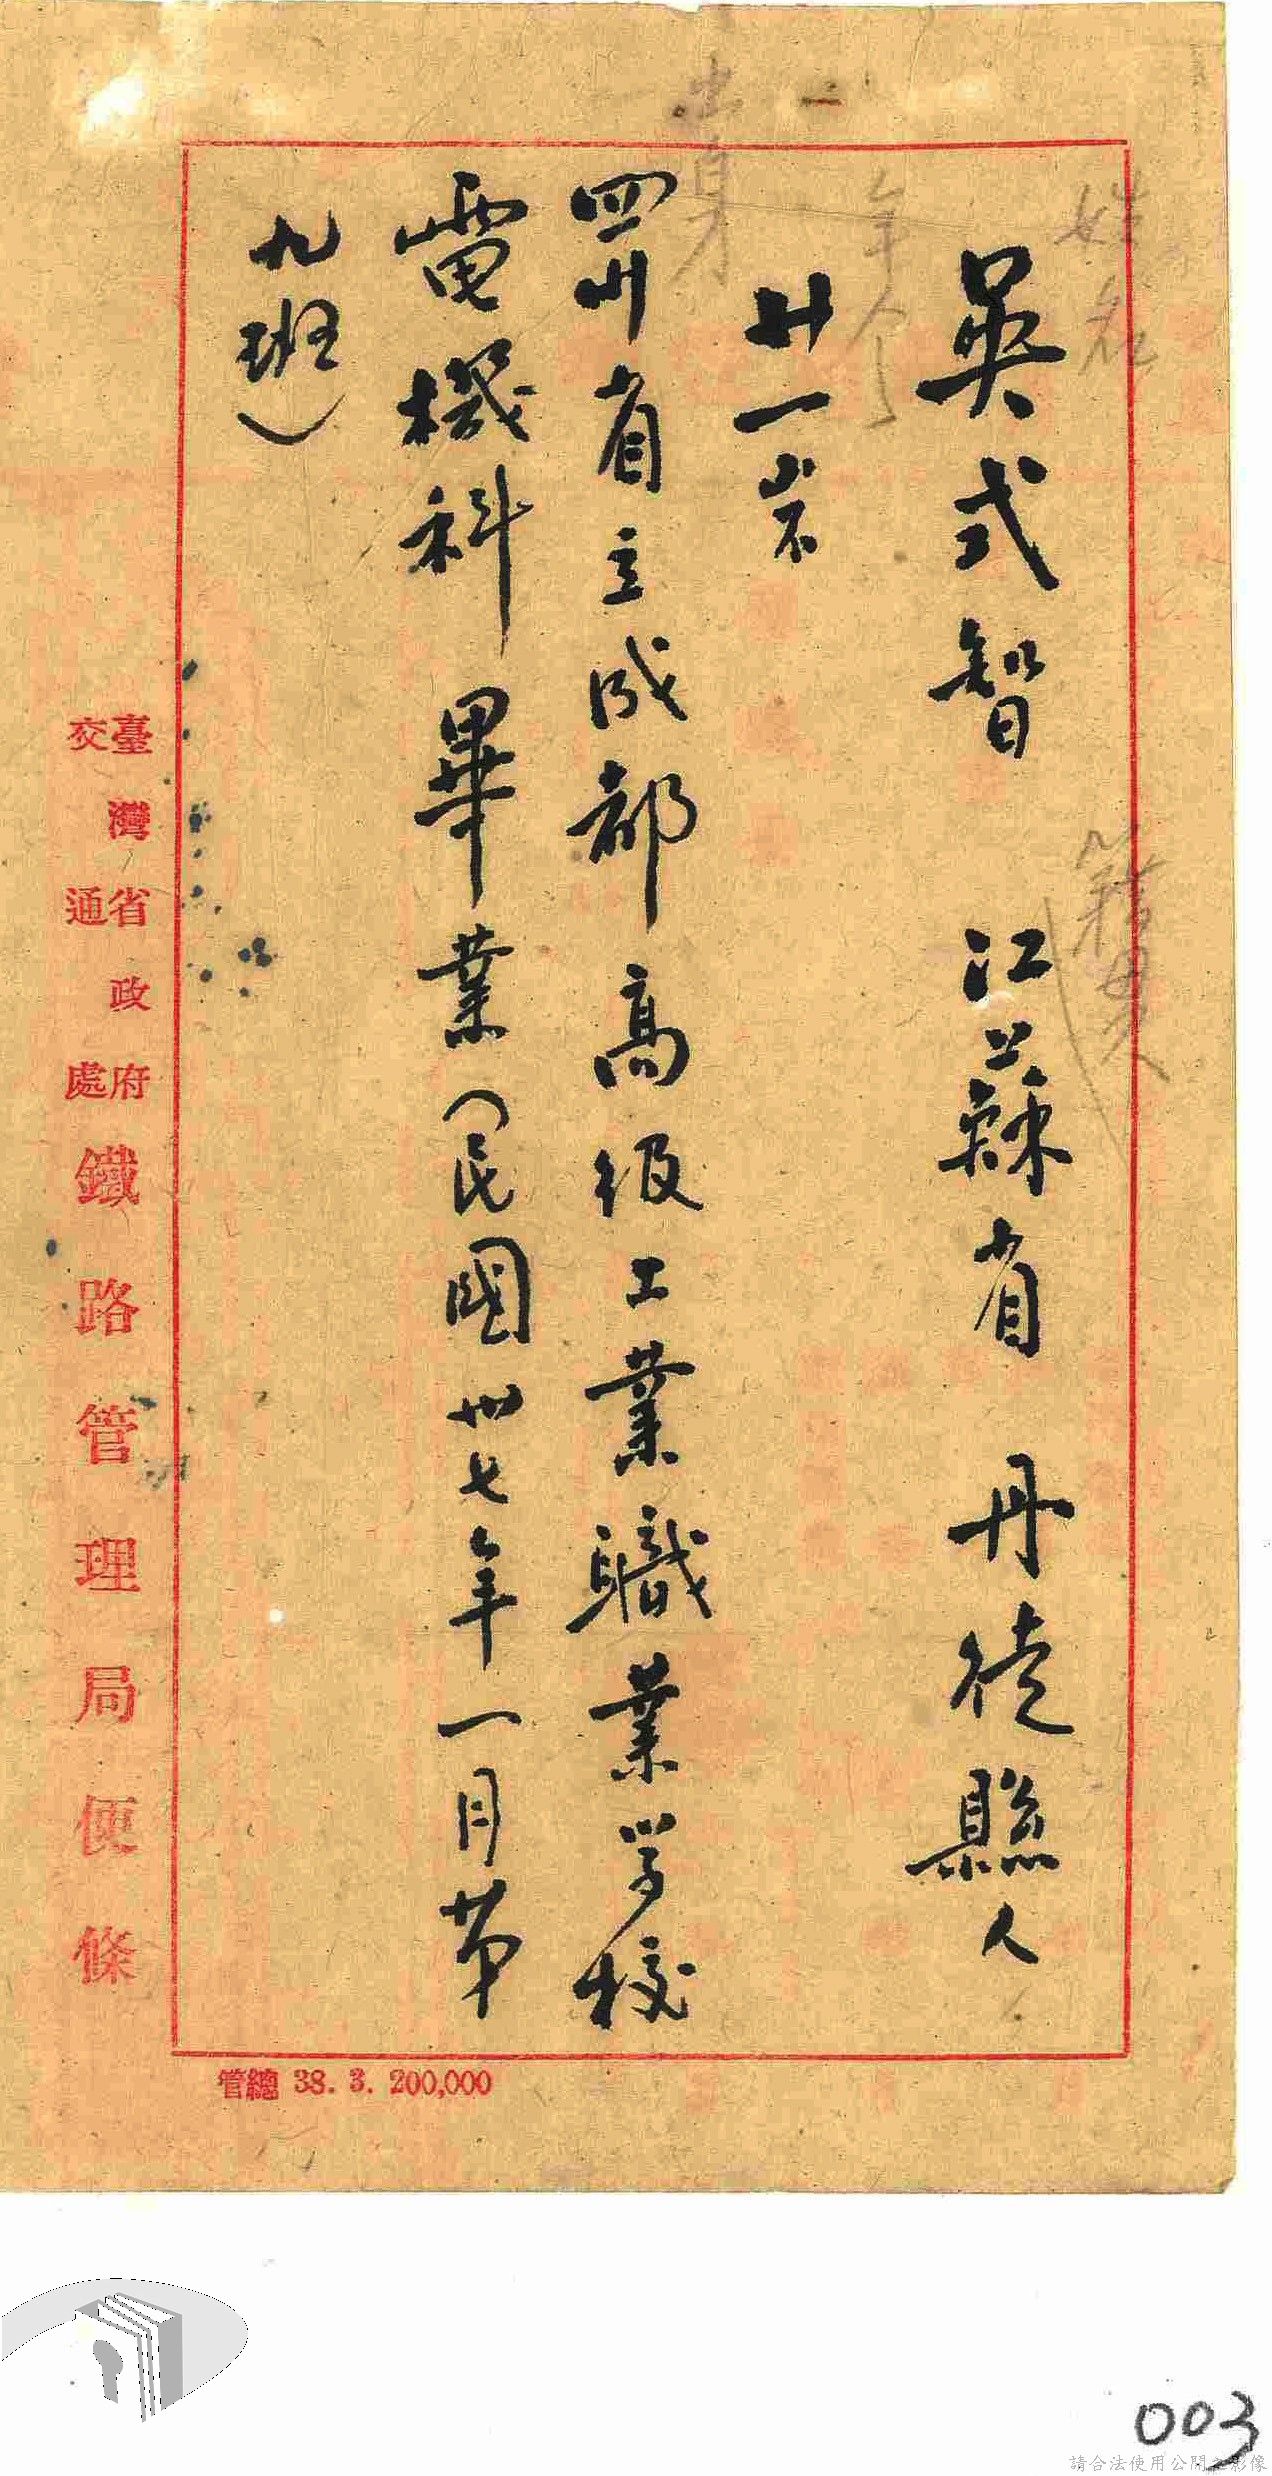 姓名
籍貫
吳式智 江蘇省 丹徒縣人
年令
廿一岁
出身
四川省立成都高级工業職業学校
電機科畢業(民國卅七年一月第
九班)
臺灣省政府
交通處
鐵路管理局便條
管總 38. 3. 200,000
003
請合法使用公開之影像